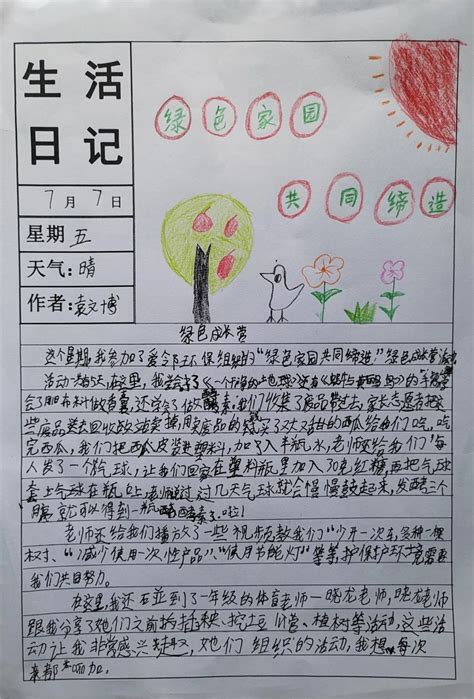 生活
日记
7月7日
星期五
天气:晴
作者:袁文博
绿色家园
共同缔造
绿色成长营
这个星期,我参加了爱邻环保组织的“绿色家园共同缔造”绿色成长营
活动。在这里,我学会了《一个干净的地球》还有
会了用布料做,还学了做酵素。我们收集了废品带过去,家长志愿者把
这些废品拿去回收站卖,换用卖废品的钱买了又大又甜的西瓜给我们吃,吃
完西瓜,我们把西瓜皮装进塑料,加入半瓶水,老师还给我们每
人发了一个气球,让我们回家在塑料瓶里加入30克红糖,再把气球
套上气球在瓶口上,老师说过过几天气球就会慢慢鼓起来,发酵三个
月就可以得到一瓶酵素了啦!
老师还给我们播放了一些视频教我们“少开一次车,多种一棵
树”、“减少使用一次性产品”、“使用节能灯”等等,护保护环境需要
我们共同努力。
在这里,我还碰到了一年级的体育老师—晓龙老师,晓龙老师
跟我分享了她们之前的插秧、挖土豆、植树等活动,这些活
动让我非常感兴趣,她们组织的活动,我想每次
来都参加。